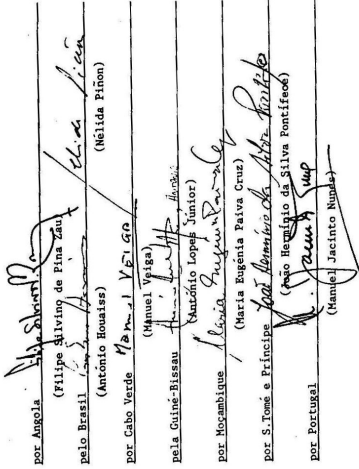 por Angola
(Filipe Silvino de Pina Zau)
pelo Brasil
(António Houaiss) (Nélida Piñon)
por Cabo Verde Manuel Veiga
(Manuel Veiga)
pela Guiné-Bissau
(António Lopes Júnior)
por Moçambique
(Maria Eugénia Paiva Cruz)
por S.Tomé e Príncipe João Hermínio da Silva Pontífece
(João Hermínio da Silva Pontífece)
por Portugal
(Manuel Jacinto Nunes)